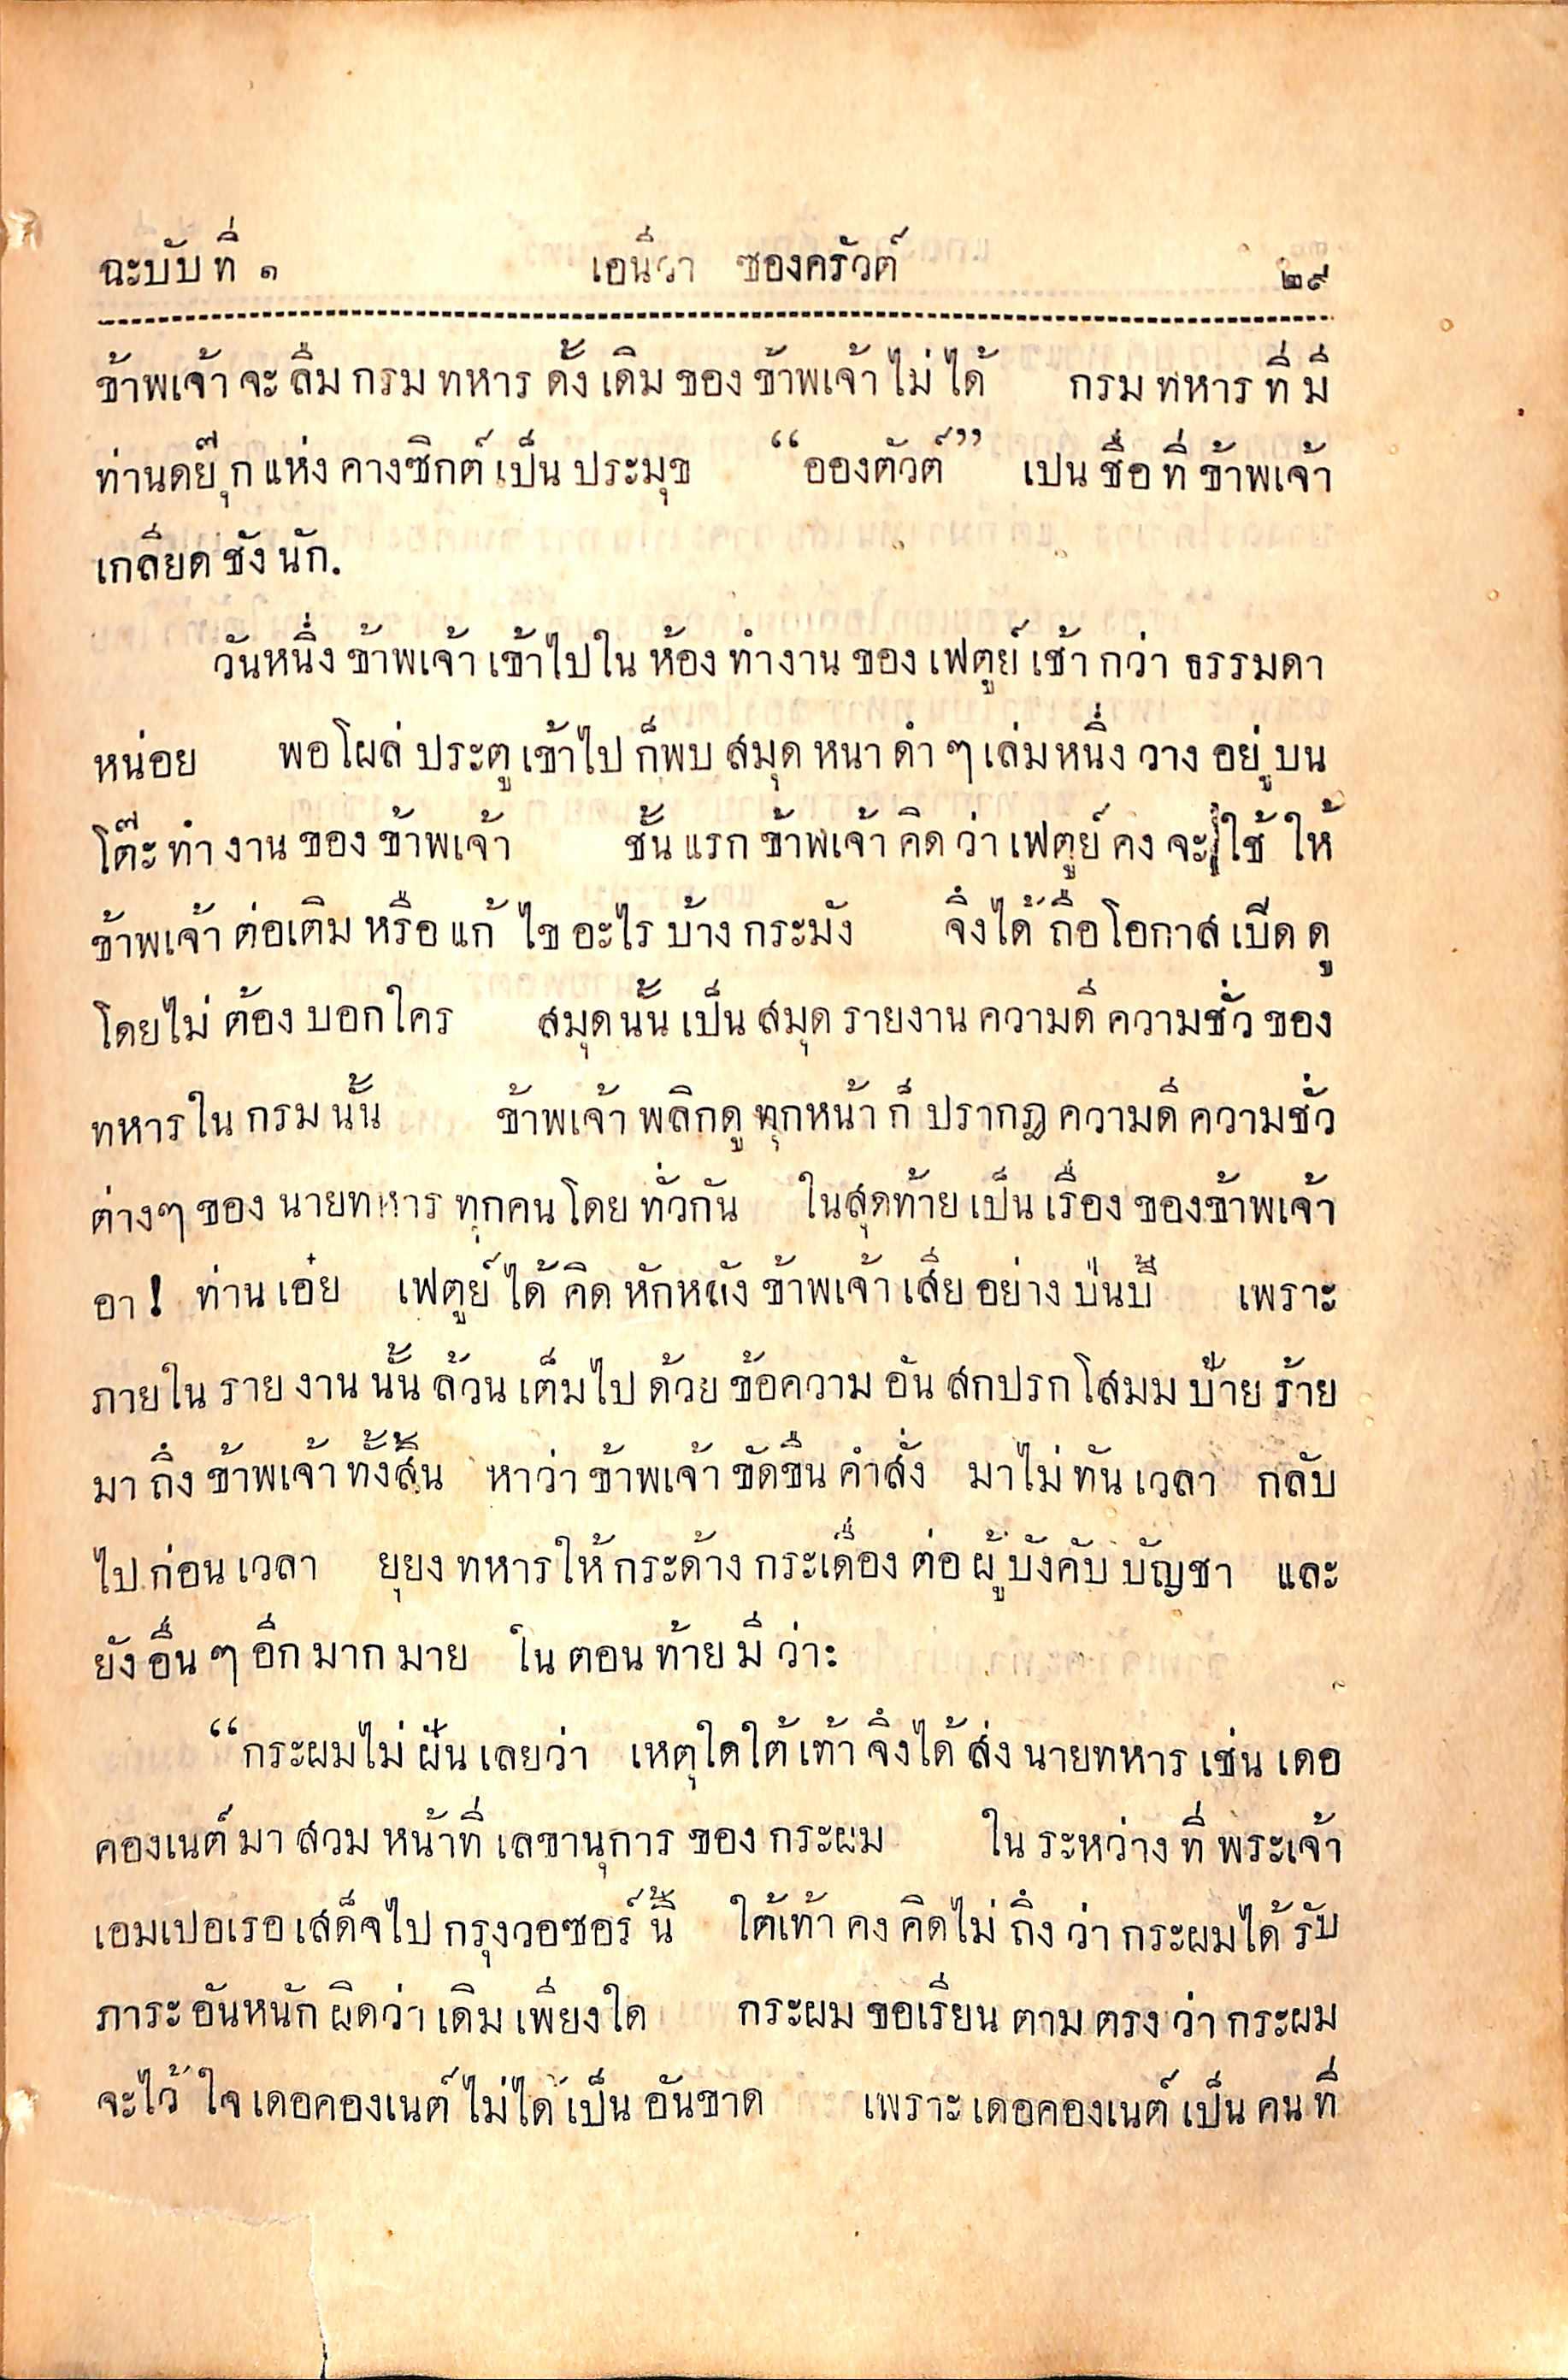 ฉะบับที่ ๑ เอนีวา ซองครัวต์ ๒๙
ข้าพเจ้าจะลืมกรมทหารดั้งเดิมของข้าพเจ้าไม่ได้ กรมทหารที่มี
ท่านดยุ๊กแห่งคางซิกต์เป็นประมุข “อองตัวต์” เปนชื่อที่ข้าพเจ้า
เกลียดชังนัก.
วันหนึ่งข้าพเจ้าเข้าไปในห้องทำงานของเฟตูย์เช้ากว่าธรรมดา
หน่อย พอโผล่ประตูเข้าไปก็พบสมุดหนาดำๆเล่มหนึ่งวางอยู่บน
โต๊ะทำงานของข้าพเจ้า ชั้นแรกข้าพเจ้าคิดว่าเฟตูย์คงจะใช้ให้
ข้าพเจ้าต่อเติมหรือแก้ไขอะไรบ้างกระมัง จึงได้ถือโอกาสเปิดดู
โดยไม่ต้องบอกใคร สมุดนั้นเป็นสมุดรายงานความดีความชั่วของ
ทหารในกรมนั้น ข้าพเจ้าพลิกดูทุกหน้าก็ปรากฎความดีความชั่ว
ต่างๆของนายทหารทุกคนโดยทั่วกัน ในสุดท้ายเป็นเรื่องของข้าพเจ้า
อา! ท่านเอ๋ย เฟตูย์ได้คิดหักหลังข้าพเจ้าเสียอย่างป่นปี้ เพราะ
ภายในรายงานนั้นล้วนเต็มไปด้วยข้อความอันสกปรกโสมมป้ายร้าย
มาถึงข้าพเจ้าทั้งสิ้น หาว่าข้าพเจ้าขัดขืนคำสั่ง มาไม่ทันเวลา กลับ
ไปก่อนเวลา ยุยงทหารให้กระด้างกระเดื่องต่อผู้บังคับบัญชา และ
ยังอื่นๆอีกมากมาย ในตอนท้ายมีว่าะ
“กระผมไม่ฝันเลยว่า เหตุใดใต้เท้าจึงได้ส่งนายทหารเช่นเดอ
คองเนต์มาสวมหน้าที่เลขานุการของกระผม ในระหว่างที่พระเจ้า
เอมเปอเรอเสด็จไปกรุงวอซอร์นี้ ใต้เท้าคงคิดไม่ถึงว่ากระผมได้รับ
ภาระอันหนักผิดว่าเดิมเพียงใด กระผมขอเรียนตามตรงว่ากระผม
จะไว้ใจเดอคองเนต์ไม่ได้เป็นอันขาด เพราะเดอคองเนต์เป็นคนที่